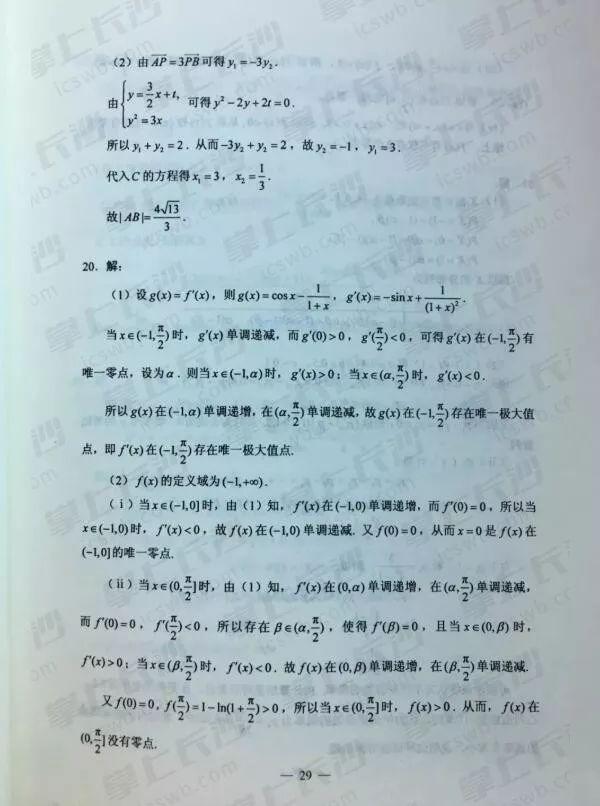 掌上长沙
icswb.com
(2) 由 $\overrightarrow{AP}=3\overrightarrow{PB}$ 可得 $y_1=-3y_2$.
由 $\begin{cases} y=\frac{3}{2}x+t, \\ y^2=3x \end{cases}$ 可得 $y^2-2y+2t=0$.
所以 $y_1+y_2=2$. 从而 $-3y_2+y_2=2$, 故 $y_2=-1$, $y_1=3$.
代入 $C$ 的方程得 $x_1=3$, $x_2=\frac{1}{3}$.
故 $|AB|=\frac{4\sqrt{13}}{3}$.
20. 解:
(1) 设 $g(x)=f'(x)$, 则 $g(x)=\cos x-\frac{1}{1+x}$, $g'(x)=-\sin x+\frac{1}{(1+x)^2}$.
当 $x\in(-1,\frac{\pi}{2})$ 时, $g'(x)$ 单调递减, 而 $g'(0)>0$, $g'(\frac{\pi}{2})<0$, 可得 $g'(x)$ 在 $(-1,\frac{\pi}{2})$ 有
唯一零点, 设为 $\alpha$. 则当 $x\in(-1,\alpha)$ 时, $g'(x)>0$; 当 $x\in(\alpha,\frac{\pi}{2})$ 时, $g'(x)<0$.
所以 $g(x)$ 在 $(-1,\alpha)$ 单调递增, 在 $(\alpha,\frac{\pi}{2})$ 单调递减, 故 $g(x)$ 在 $(-1,\frac{\pi}{2})$ 存在唯一极大值
点, 即 $f'(x)$ 在 $(-1,\frac{\pi}{2})$ 存在唯一极大值点.
(2) $f(x)$ 的定义域为 $(-1,+\infty)$.
(ⅰ) 当 $x\in(-1,0]$ 时, 由 (1) 知, $f'(x)$ 在 $(-1,0)$ 单调递增, 而 $f'(0)=0$, 所以当
$x\in(-1,0)$ 时, $f'(x)<0$, 故 $f(x)$ 在 $(-1,0)$ 单调递减. 又 $f(0)=0$, 从而 $x=0$ 是 $f(x)$ 在
$(-1,0]$ 的唯一零点.
(ⅱ) 当 $x\in(0,\frac{\pi}{2}]$ 时, 由 (1) 知, $f'(x)$ 在 $(0,\alpha)$ 单调递增, 在 $(\alpha,\frac{\pi}{2})$ 单调递减,
而 $f'(0)=0$, $f'(\frac{\pi}{2})<0$, 所以存在 $\beta\in(\alpha,\frac{\pi}{2})$, 使得 $f'(\beta)=0$, 且当 $x\in(0,\beta)$ 时,
$f'(x)>0$; 当 $x\in(\beta,\frac{\pi}{2})$ 时, $f'(x)<0$. 故 $f(x)$ 在 $(0,\beta)$ 单调递增, 在 $(\beta,\frac{\pi}{2})$ 单调递减.
又 $f(0)=0$, $f(\frac{\pi}{2})=1-\ln(1+\frac{\pi}{2})>0$, 所以当 $x\in(0,\frac{\pi}{2}]$ 时, $f(x)>0$. 从而, $f(x)$ 在
$(0,\frac{\pi}{2}]$ 没有零点.
— 29 —